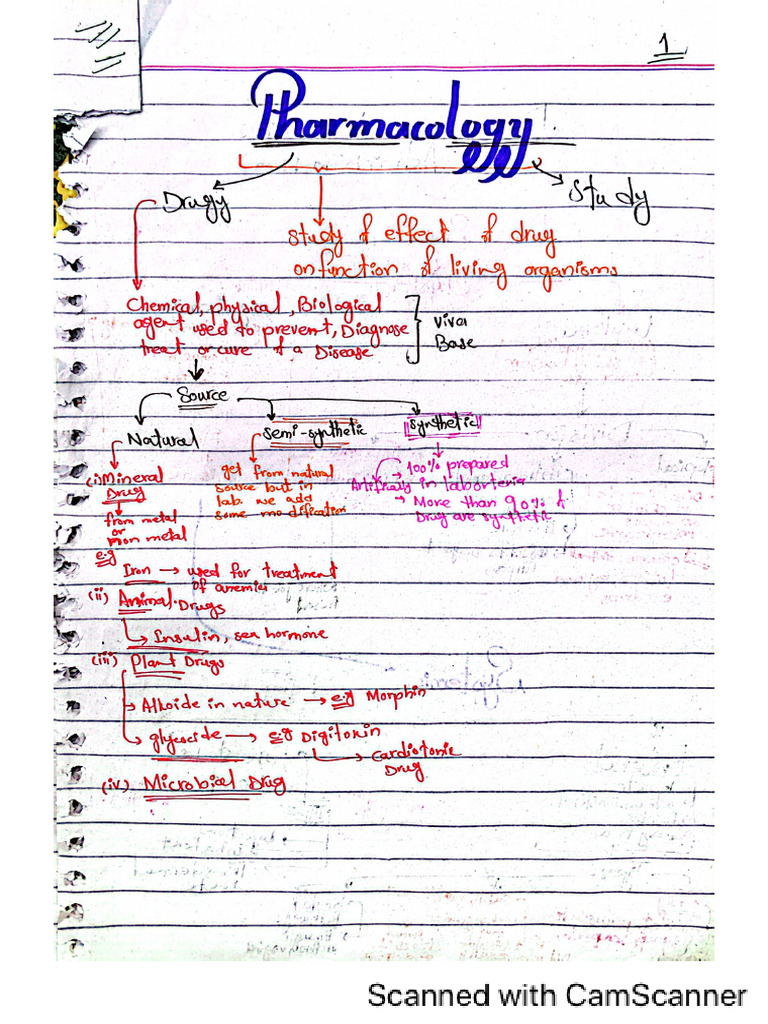 1
Pharmacology
Drugy
Study
study of effect of drug
on function of living organisms
Chemical, physical, Biological
agent used to prevent, Diagnose
treat or cure of a Disease
Viva
Base
Source
Natural
semi-synthetic
synthetic
(i) Mineral
Drug
from metal
or
non metal
get from natural
source but in
lab. we add
some modification
100% prepared
Artifically in laborteria
More than 90% of
Drug are synthetic
e.g
Iron → used for treatment
of anemia
(ii) Animal Drugs
Insulin, sex hormone
(iii) Plant Drugs
Alkloide in nature → e.g Morphin
glycocide → e.g Digitoxin
Cardiotonic
Drug
(iv) Microbical Drug
Scanned with CamScanner